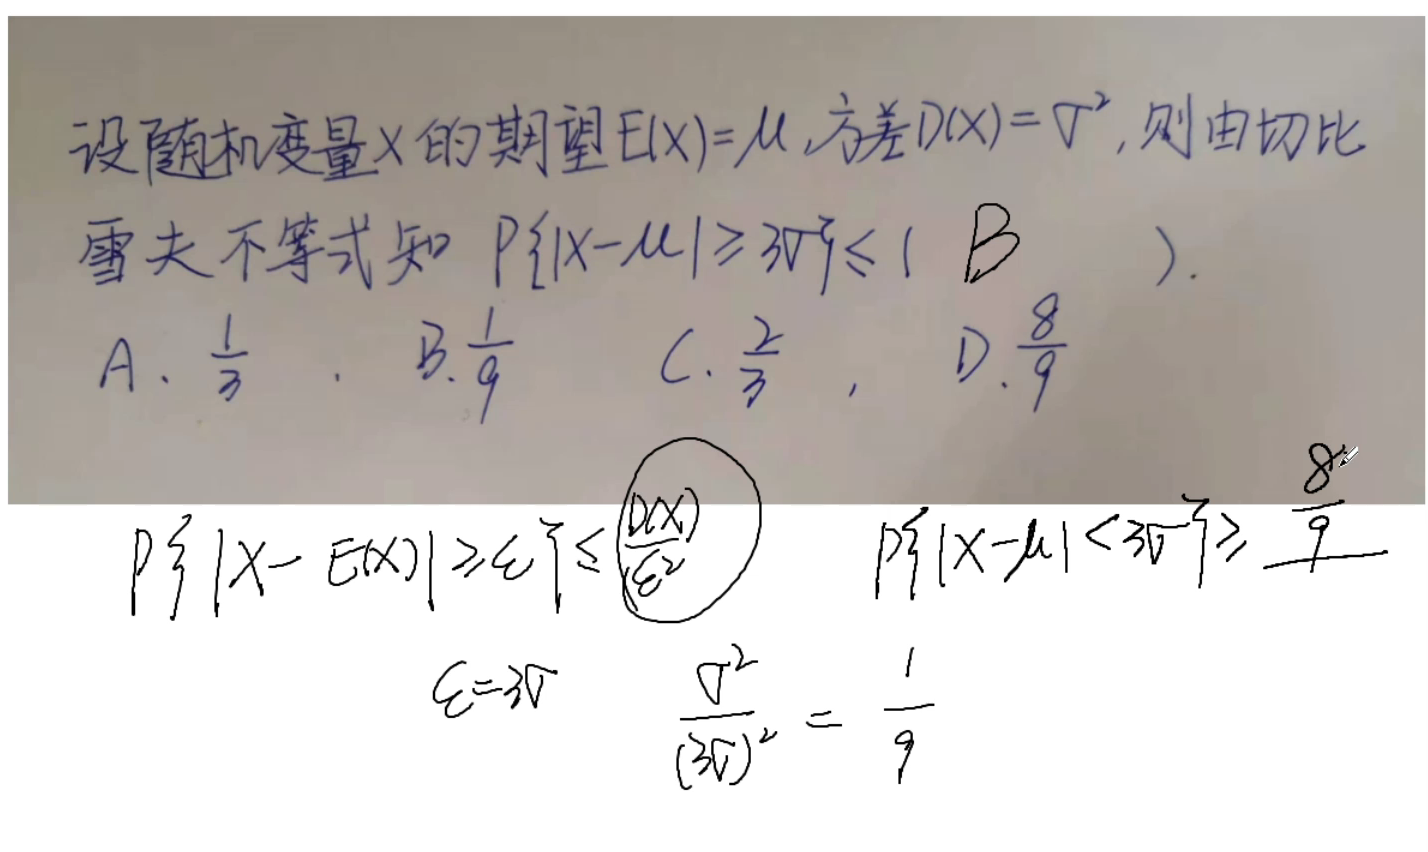 设随机变量X的期望E(X)=μ,方差D(X)=σ²,则由切比
雪夫不等式知 P{|X-μ|≥3σ}≤( B ).
A. 1/3 . B. 1/9 C. 2/3 , D. 8/9
P{|X-E(X)|≥ε}≤D(X)/ε² P{|X-μ|<3σ}≥ 8/9
ε=3σ σ²/(3σ)² = 1/9